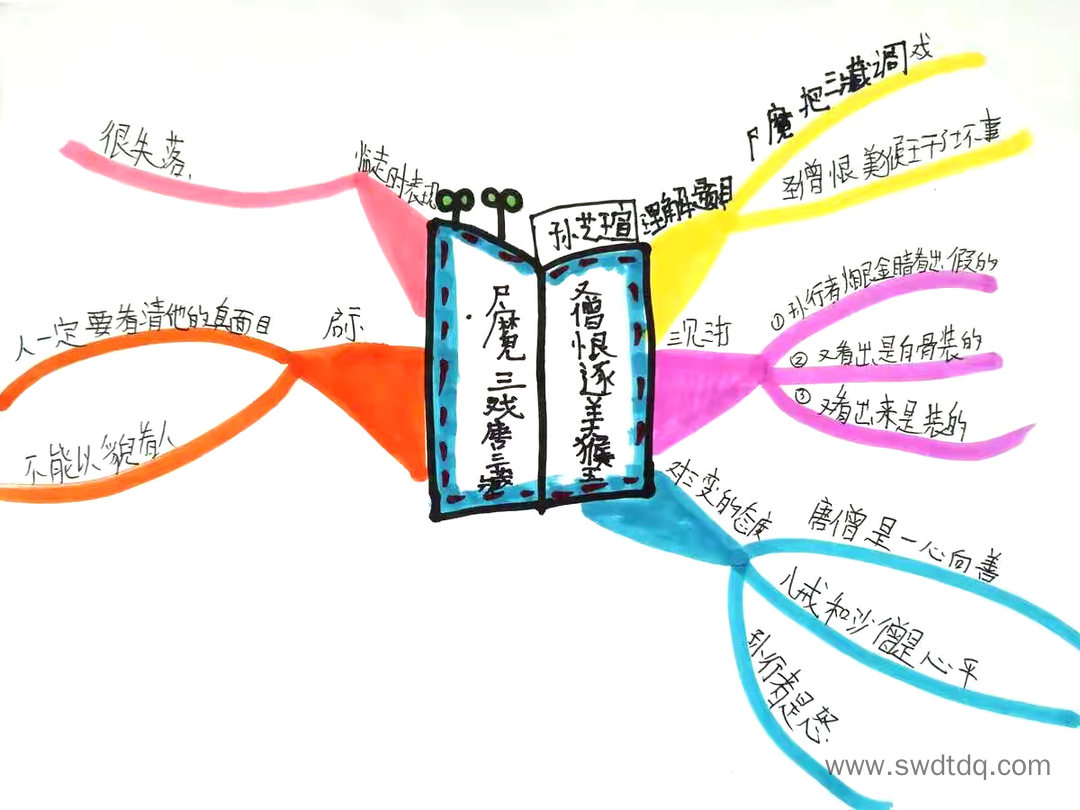 孙芝瑄
尸魔三戏唐三藏
圣僧恨逐美猴王
理解题目
尸魔把三藏调戏
圣僧恨美猴王干坏事
三见三打
①孙行者火眼金睛看出假的
②又看出是白骨装的
③又看出来是装的
对三变的态度
唐僧是一心向善
八戒和沙僧是心平
孙行者是怒
启示
人一定要看清他的真面目
不能以貌看人
临走时表现
很失落、
www.swdtdq.com